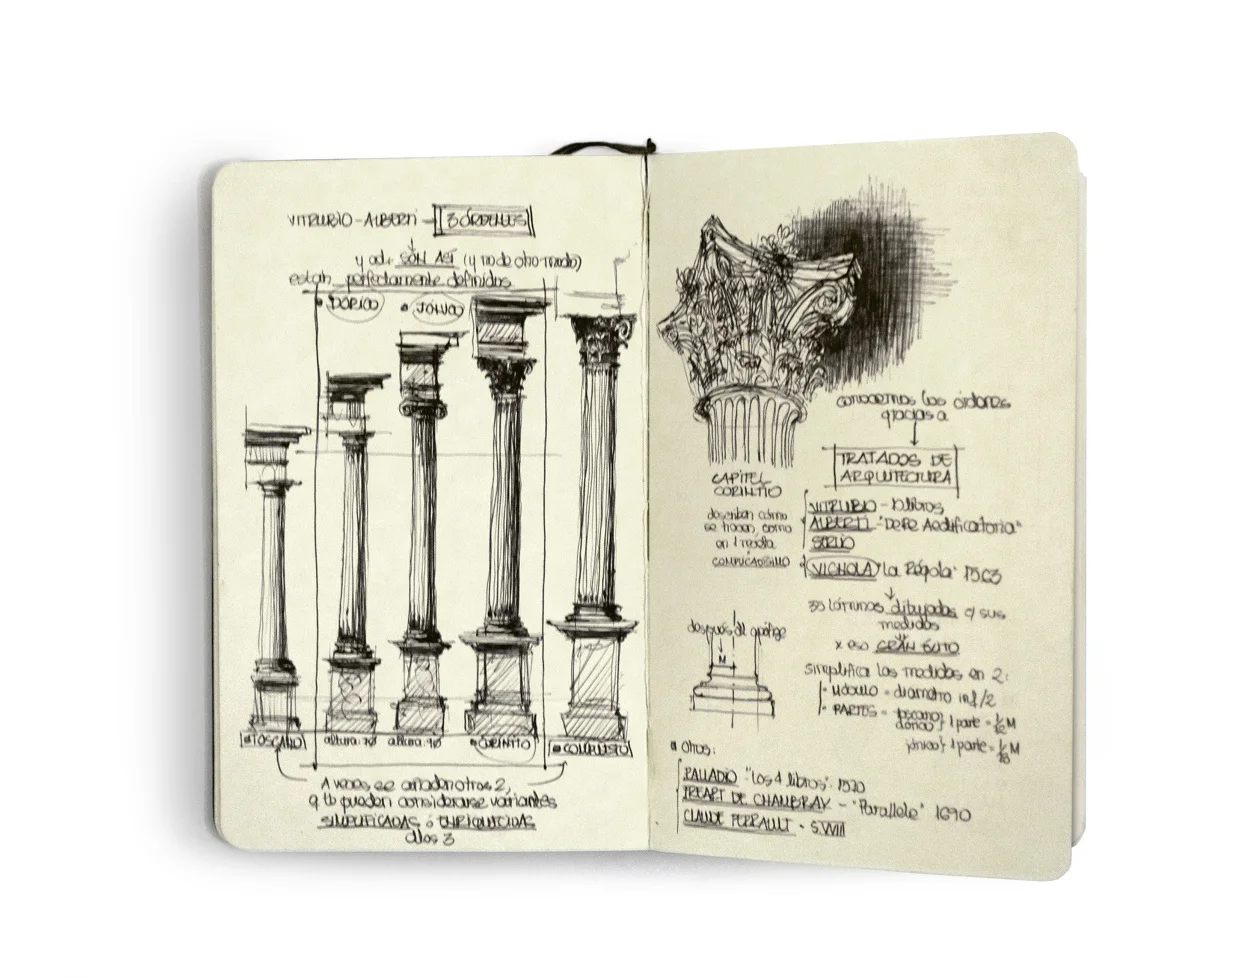 VITRUBIO - ALBERTI - 3 ÓRDENES
y ad+ SON ASÍ (y no de otro modo)
están perfectamente definidos
DÓRICO
JÓNICO
TOSCANO
altura: 7Ø
altura: 9Ø
CORINTIO
COMPUESTO
A veces se añaden otros 2,
q tb pueden considerarse variantes
SIMPLIFICADAS ó ENRIQUECIDAS
d los 3
CAPITEL
CORINTIO
describen cómo
se hacen, como
en 1 receta
COMPLICADÍSIMO
conocemos los órdenes
gracias a
TRATADOS DE
ARQUITECTURA
VITRUBIO - 10 libros
ALBERTI - "De Re Aedificatoria"
SERLIO
VIGNOLA "La Régola" 1563
láminas dibujadas q sus
medidas
x eso GRAN ÉXITO
simplifica las medidas en 2:
MÓDULO = diámetro inf/2
PARTES = toscano
dórico } 1 parte = 1/12 M
jónico } 1 parte = 1/18 M
después del apófige
M
Otros:
PALLADIO "Los 4 libros" 1570
FREART DE CHAMBRAY - "Parallele" 1690
CLAUDE PERRAULT - S. XVIII